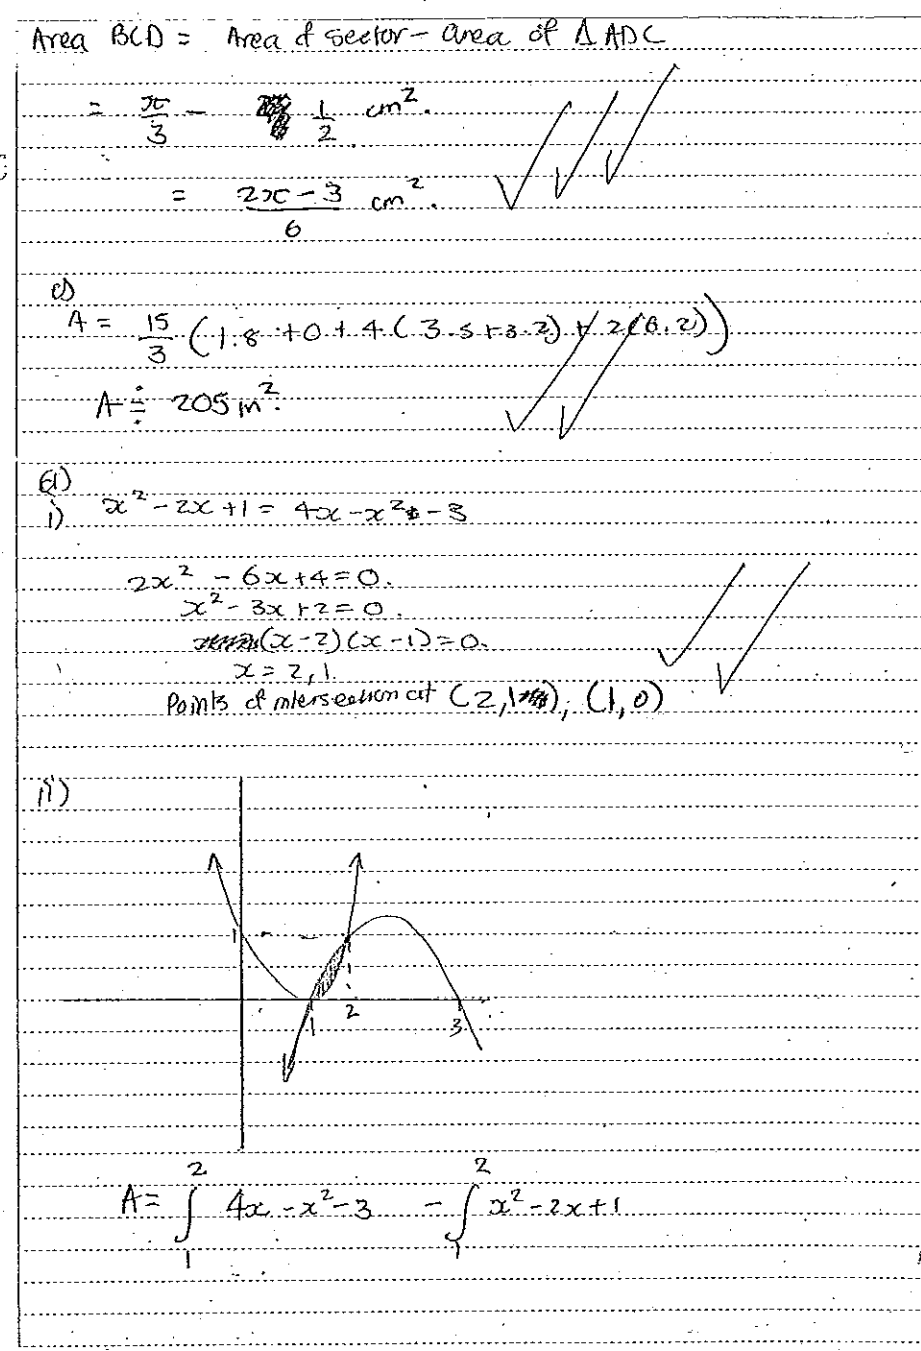 Area BCD = Area of sector - area of Δ ADC
= π/3 - 1/2 cm².
= (2π - 3)/6 cm².
c)
A = 15/3 (1.8 + 0 + 4(3.5 + 3.2) + 2(6.2))
A ≑ 205 m².
d)
i) x² - 2x + 1 = 4x - x² - 3
2x² - 6x + 4 = 0.
x² - 3x + 2 = 0.
(x-2)(x-1) = 0.
x = 2, 1.
Points of intersection at (2,1), (1,0)
ii)
1
1 2 3
A = ∫₁² 4x - x² - 3 - ∫₁² x² - 2x + 1